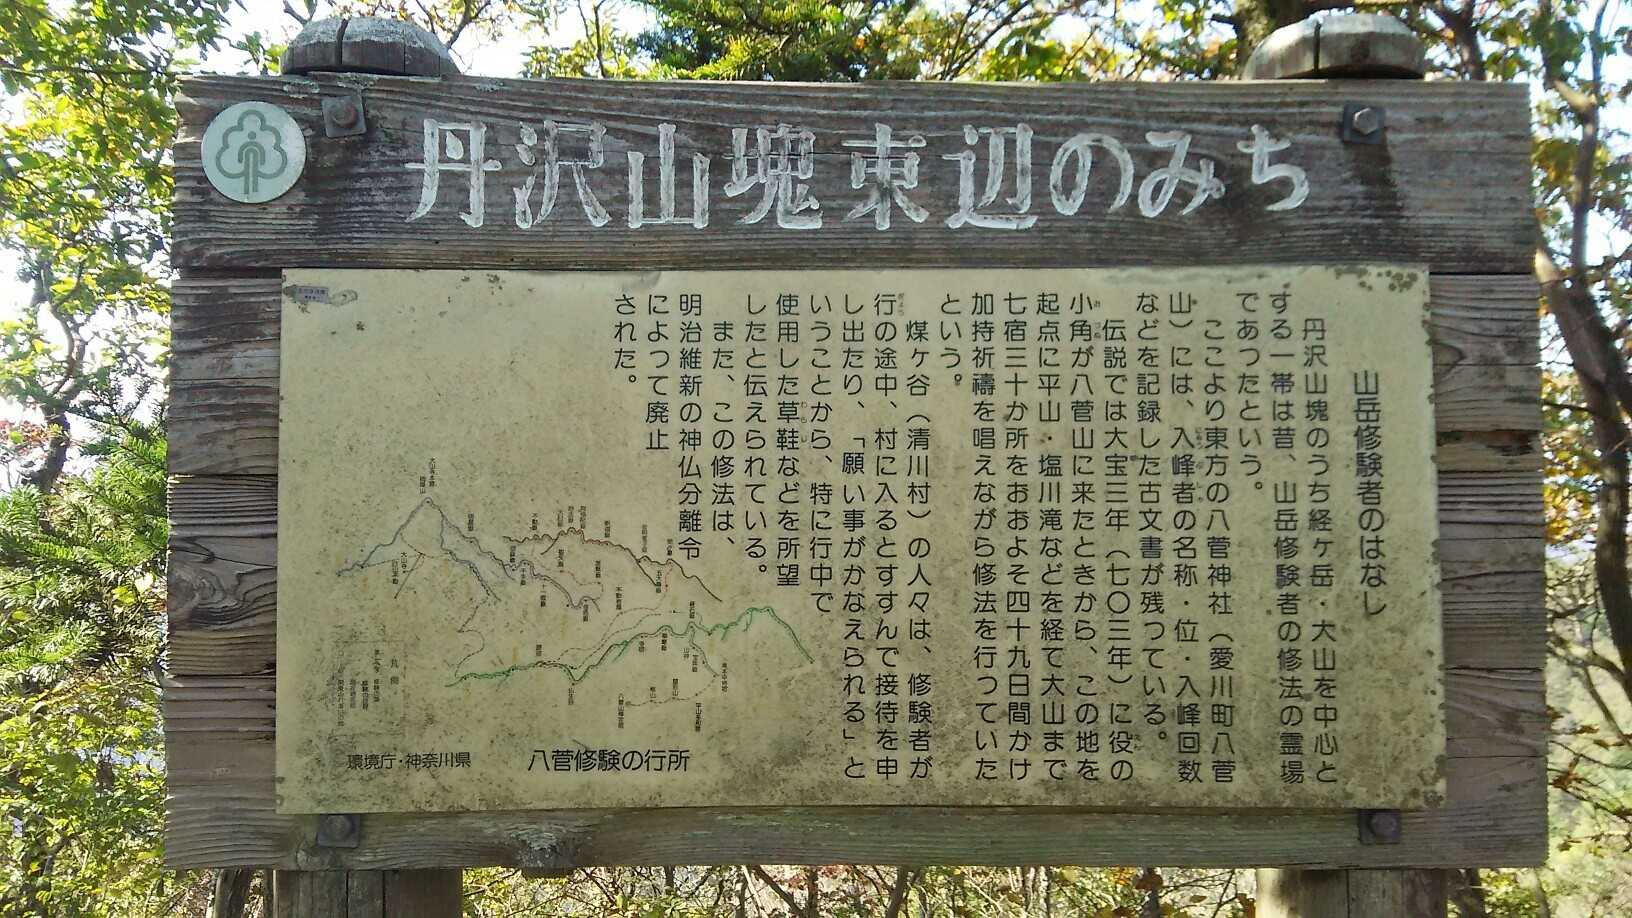 丹沢山塊東辺のみち
山岳修験者のはなし
丹沢山塊のうち経ヶ岳・大山を中心と
する一帯は昔、山岳修験者の修法の霊場
であつたという。
ここより東方の八菅神社（愛川町八菅
山）には、入峰者の名称・位・入峰回数
などを記録した古文書が残っている。
伝説では大宝三年（七〇三年）に役の
小角が八菅山に来たときから、この地を
起点に平山・塩川滝などを経て大山まで
七宿三十か所をおおよそ四十九日間かけ
加持祈禱を唱えながら修法を行っていた
という。
煤ヶ谷（清川村）の人々は、修験者が
行の途中、村に入るとすすんで接待を申
し出たり、「願い事がかなえられる」と
いうことから、特に行中で
使用した草鞋などを所望
したと伝えられている。
また、この修法は、
明治維新の神仏分離令
によって廃止
された。
八菅修験の行所
環境庁・神奈川県